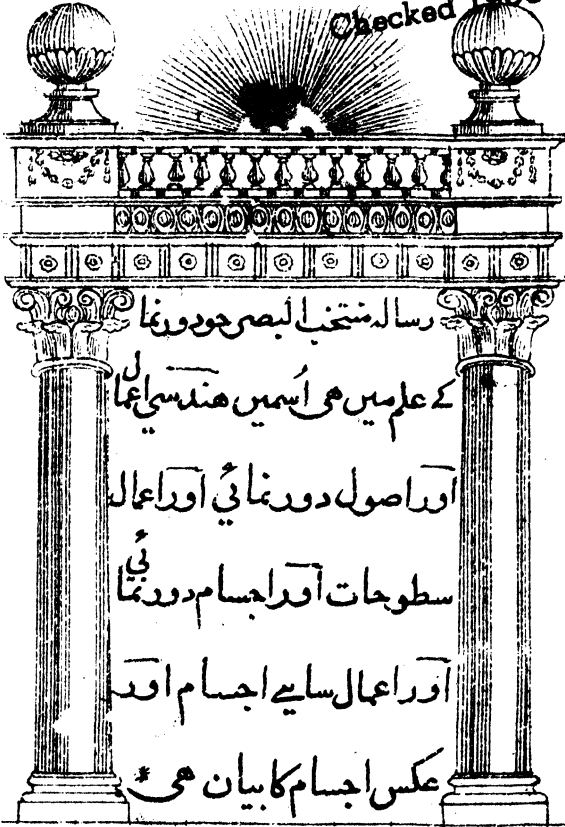 Checked
رسالہ منتخب البصر جو دور نما
کے علم میں هی اُسمیں هندسي اعمال
اور اصول دور نمائي اور اعمال
سطوحات اور اجسام دور نمائي
اور اعمال سایے اجسام اور
عکس اجسام کا بیان هی *